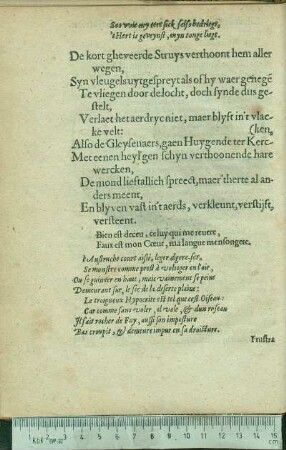 Soo wie my eert sick selfs bedriegt,
't Hert is geveynst, myn tonge liegt.
De kort gheveerde Struys verthoont hem aller
wegen,
Syn vleugels uytgespreyt als of hy waer genegẽ
Te vliegen door de locht, doch synde dus ge-
stelt,
Verlaet het aerdryc niet, maer blyft in't vlac-
ke velt: (ken,
Also de Gleysenaers, gaen Huygende ter Kerc-
Met eenen heyl'gen schyn verthoonende hare
wercken,
De mond lieftallich spreect, maer 'therte al an-
ders meent,
En blyven vast in't aerds, verkleunt, verstijft,
versteent.
Bien est deceu, celuy qui me revere,
Faux est mon Cœur, ma langue mensongere.
L'Austruche court aislé, leger digere-fer,
Se monstre comme prest à voltiger en l'air,
Ou se guinder en haut, mais vainement se peine
Demeurant sur, le sec de la deserte plaine:
Le trompeux Hypocrite est tel que cest Oiseau:
Car comme sans voler, il vole, & d'un roseau
Il fait rocher de Foy, aussi son imposture
Bas croupit, & demeure impur en sa droiture.
Frustra
1 2 3 4 5 6 7 8 9 10 11 12 13 14 15
cm